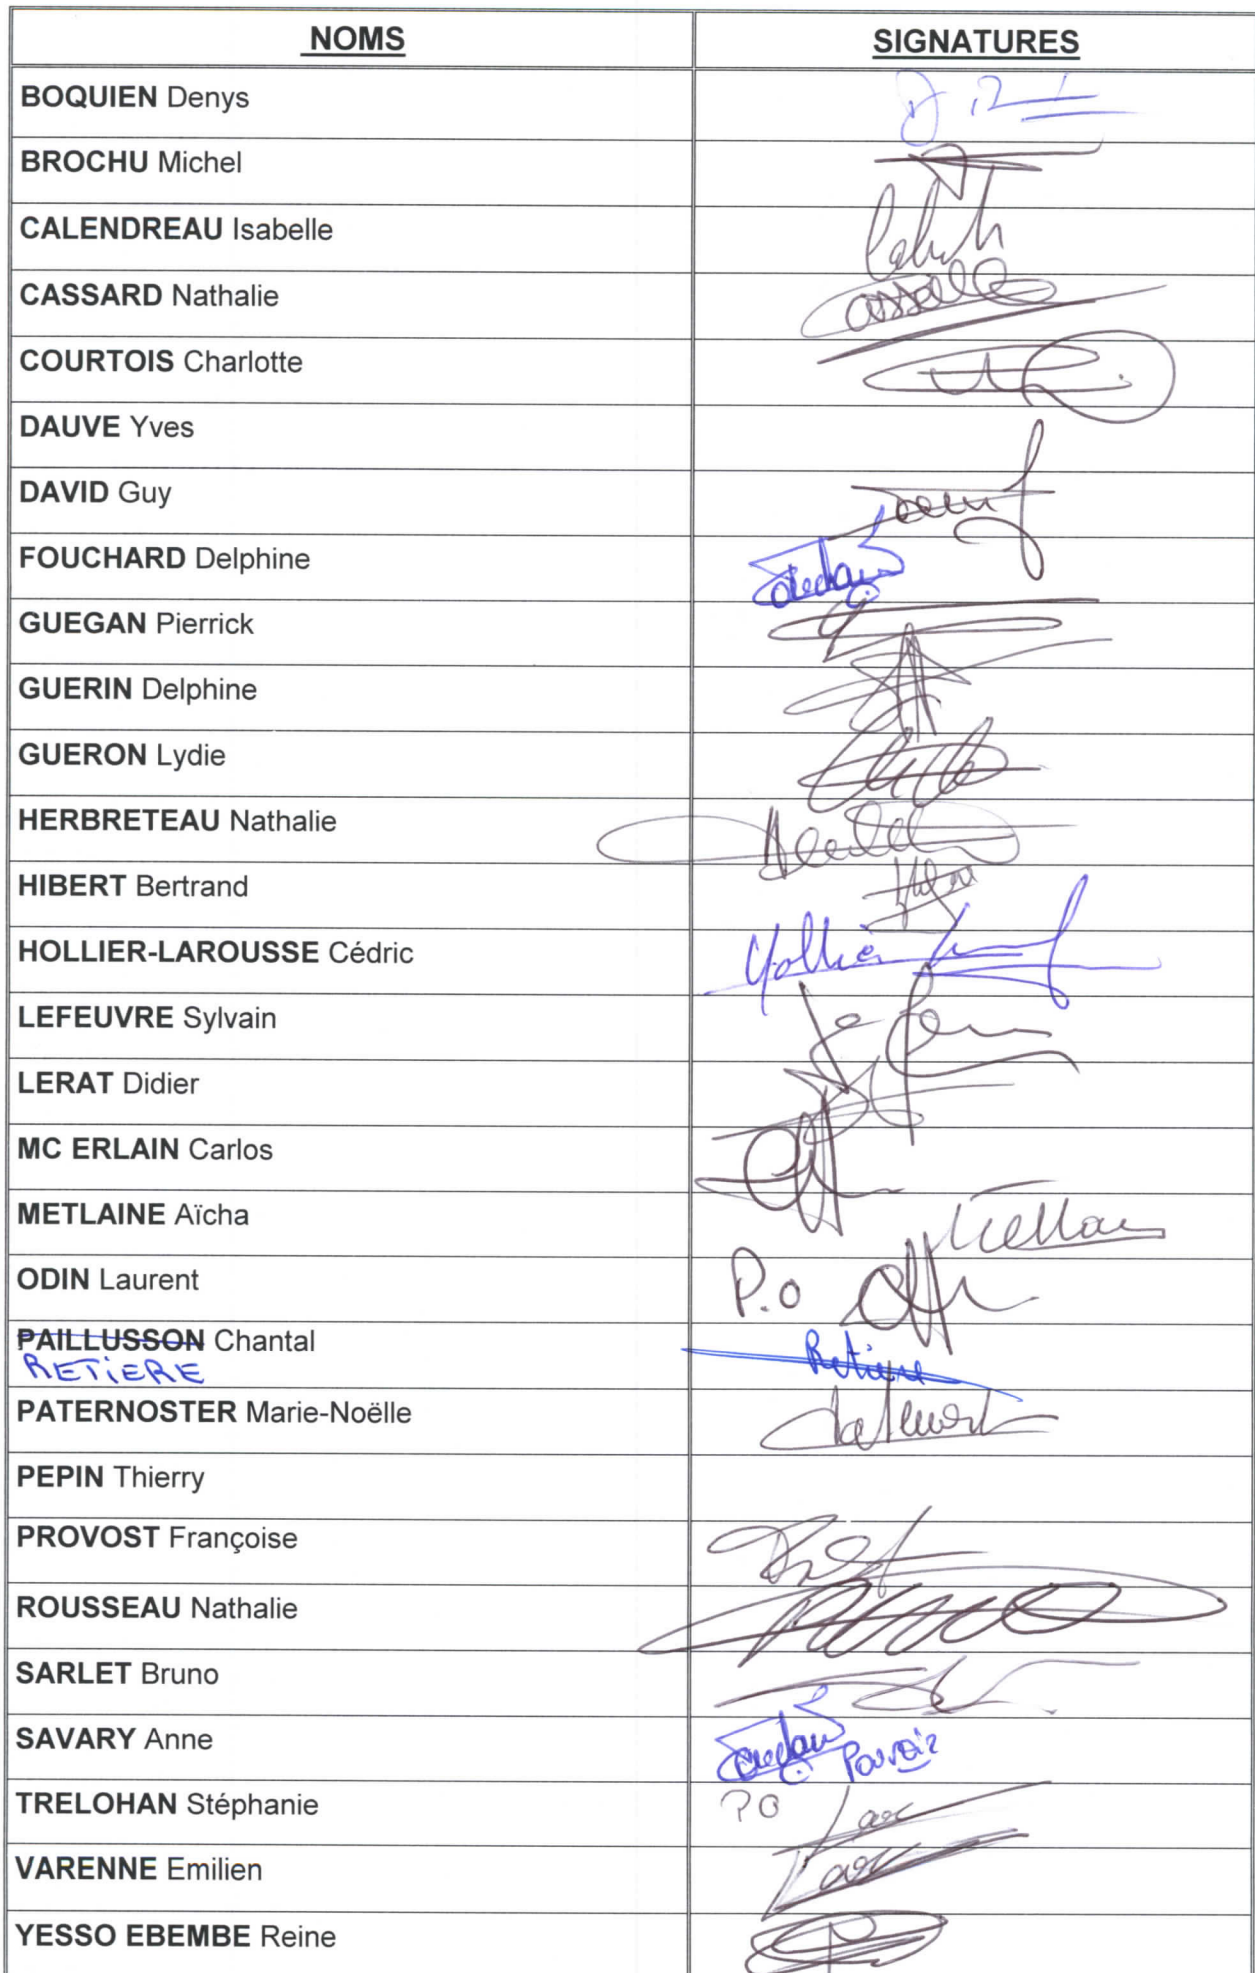 NOMS SIGNATURES
BOQUIEN Denys
BROCHU Michel
CALENDREAU Isabelle
CASSARD Nathalie
COURTOIS Charlotte
DAUVE Yves
DAVID Guy
FOUCHARD Delphine
GUEGAN Pierrick
GUERIN Delphine
GUERON Lydie
HERBRETEAU Nathalie
HIBERT Bertrand
HOLLIER-LAROUSSE Cédric
LEFEUVRE Sylvain
LERAT Didier
MC ERLAIN Carlos
METLAINE Aïcha
ODIN Laurent P.O
PAILLUSSON Chantal
RETIERE Retiere
PATERNOSTER Marie-Noëlle
PEPIN Thierry
PROVOST Françoise
ROUSSEAU Nathalie
SARLET Bruno
SAVARY Anne Pouvoir
TRELOHAN Stéphanie PO
VARENNE Emilien
YESSO EBEMBE Reine